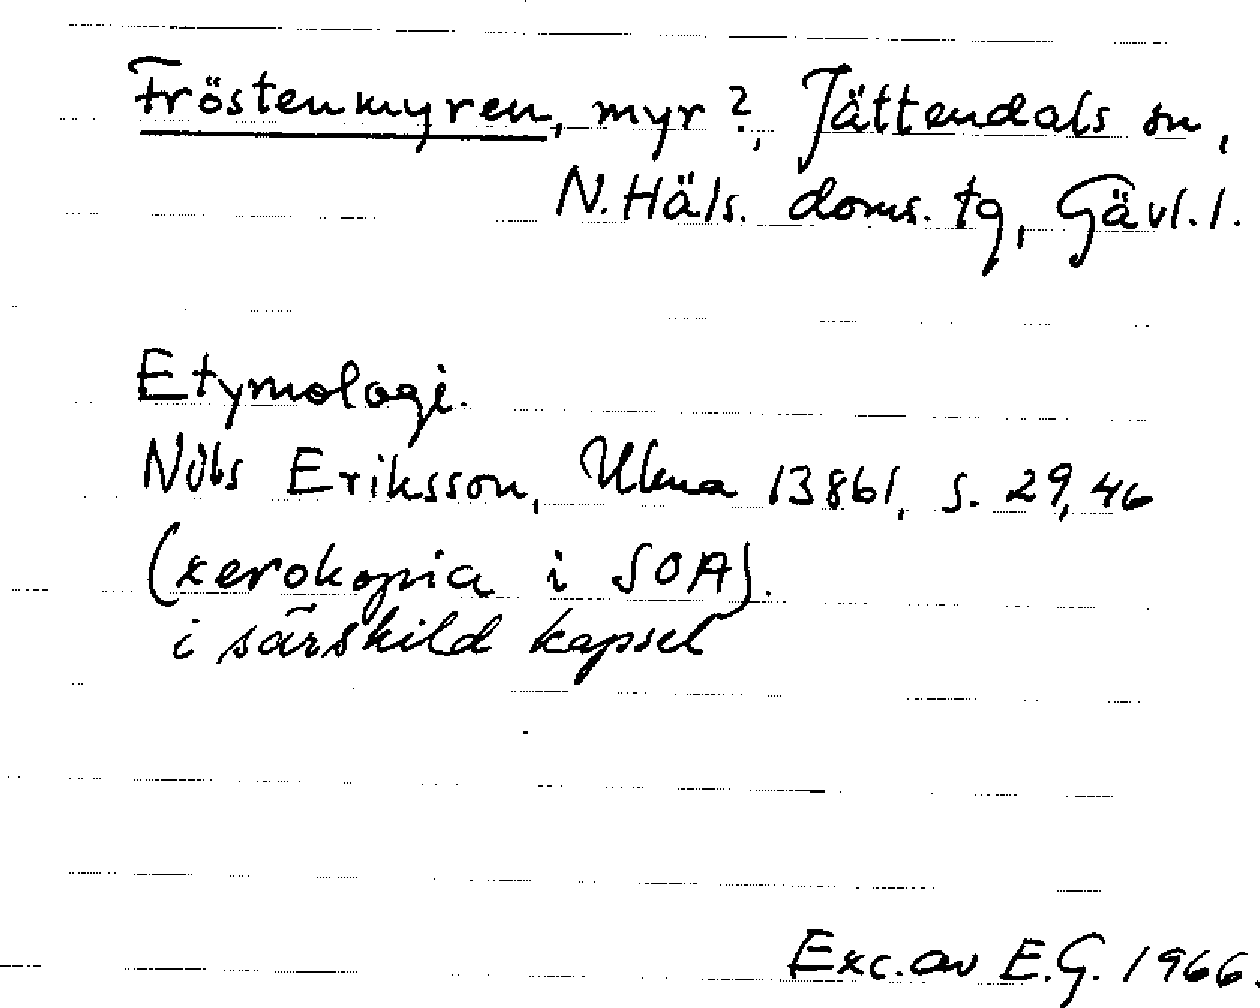 Fröstenmyren, myr?, Jättendals sn,
N. Häls. doms. tg, Gävl. l.
Etymologi.
Nils Eriksson, Ulma 13861, s. 29, 46
(xerokopia i SOA).
i särskild kapsel
Exc. av E.G. 1966.